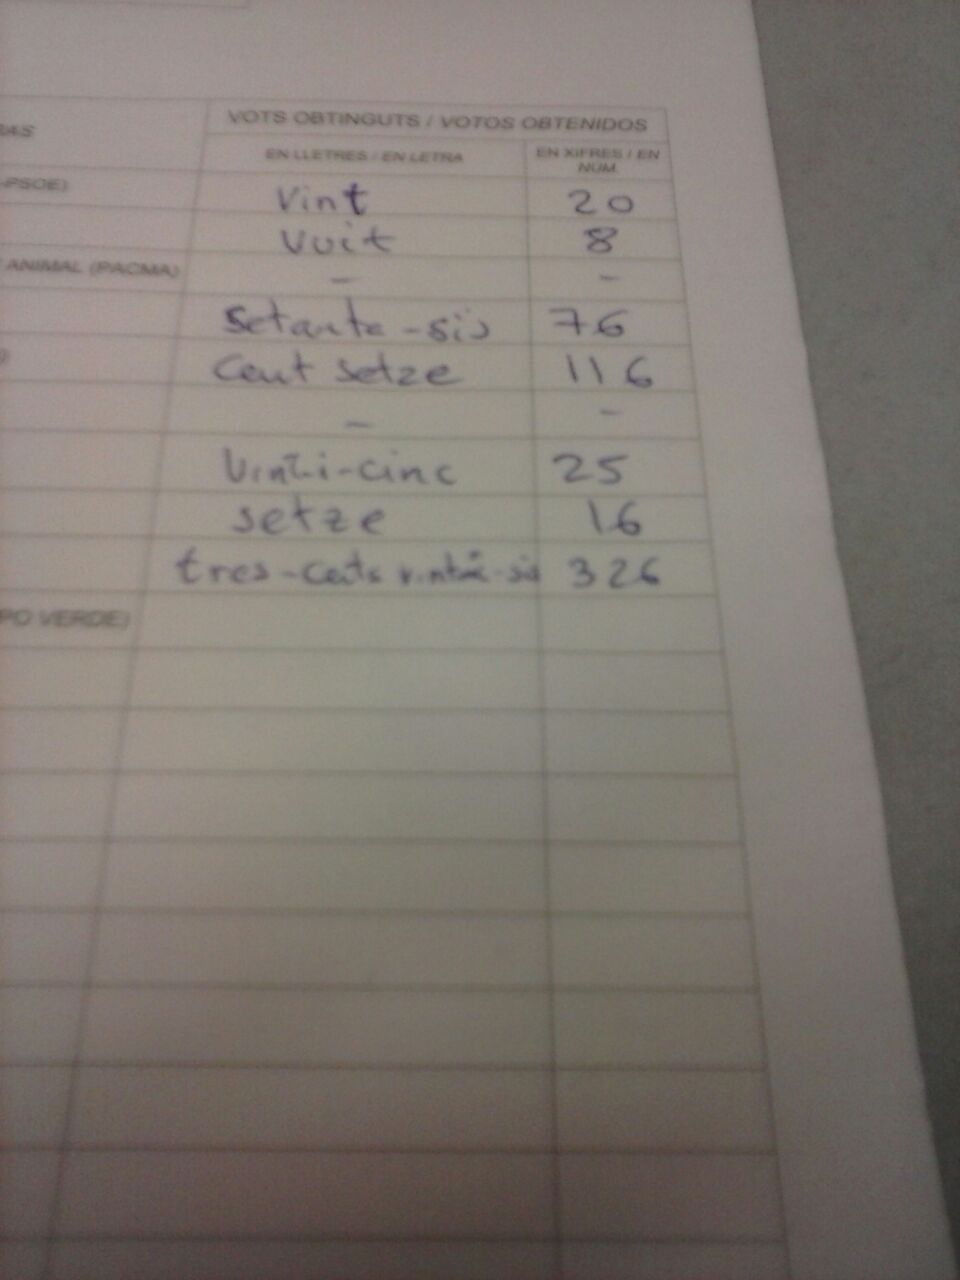 RAS VOTS OBTINGUTS / VOTOS OBTENIDOS
EN LLETRES / EN LETRA EN XIFRES / EN NÚM
-PSOE) Vint 20
Vuit 8
ANIMAL (PACMA) - -
Setanta-sis 76
) Cent setze 116
- -
Vint-i-cinc 25
setze 16
tres-cents vint-i-sis 326
PO VERDE)